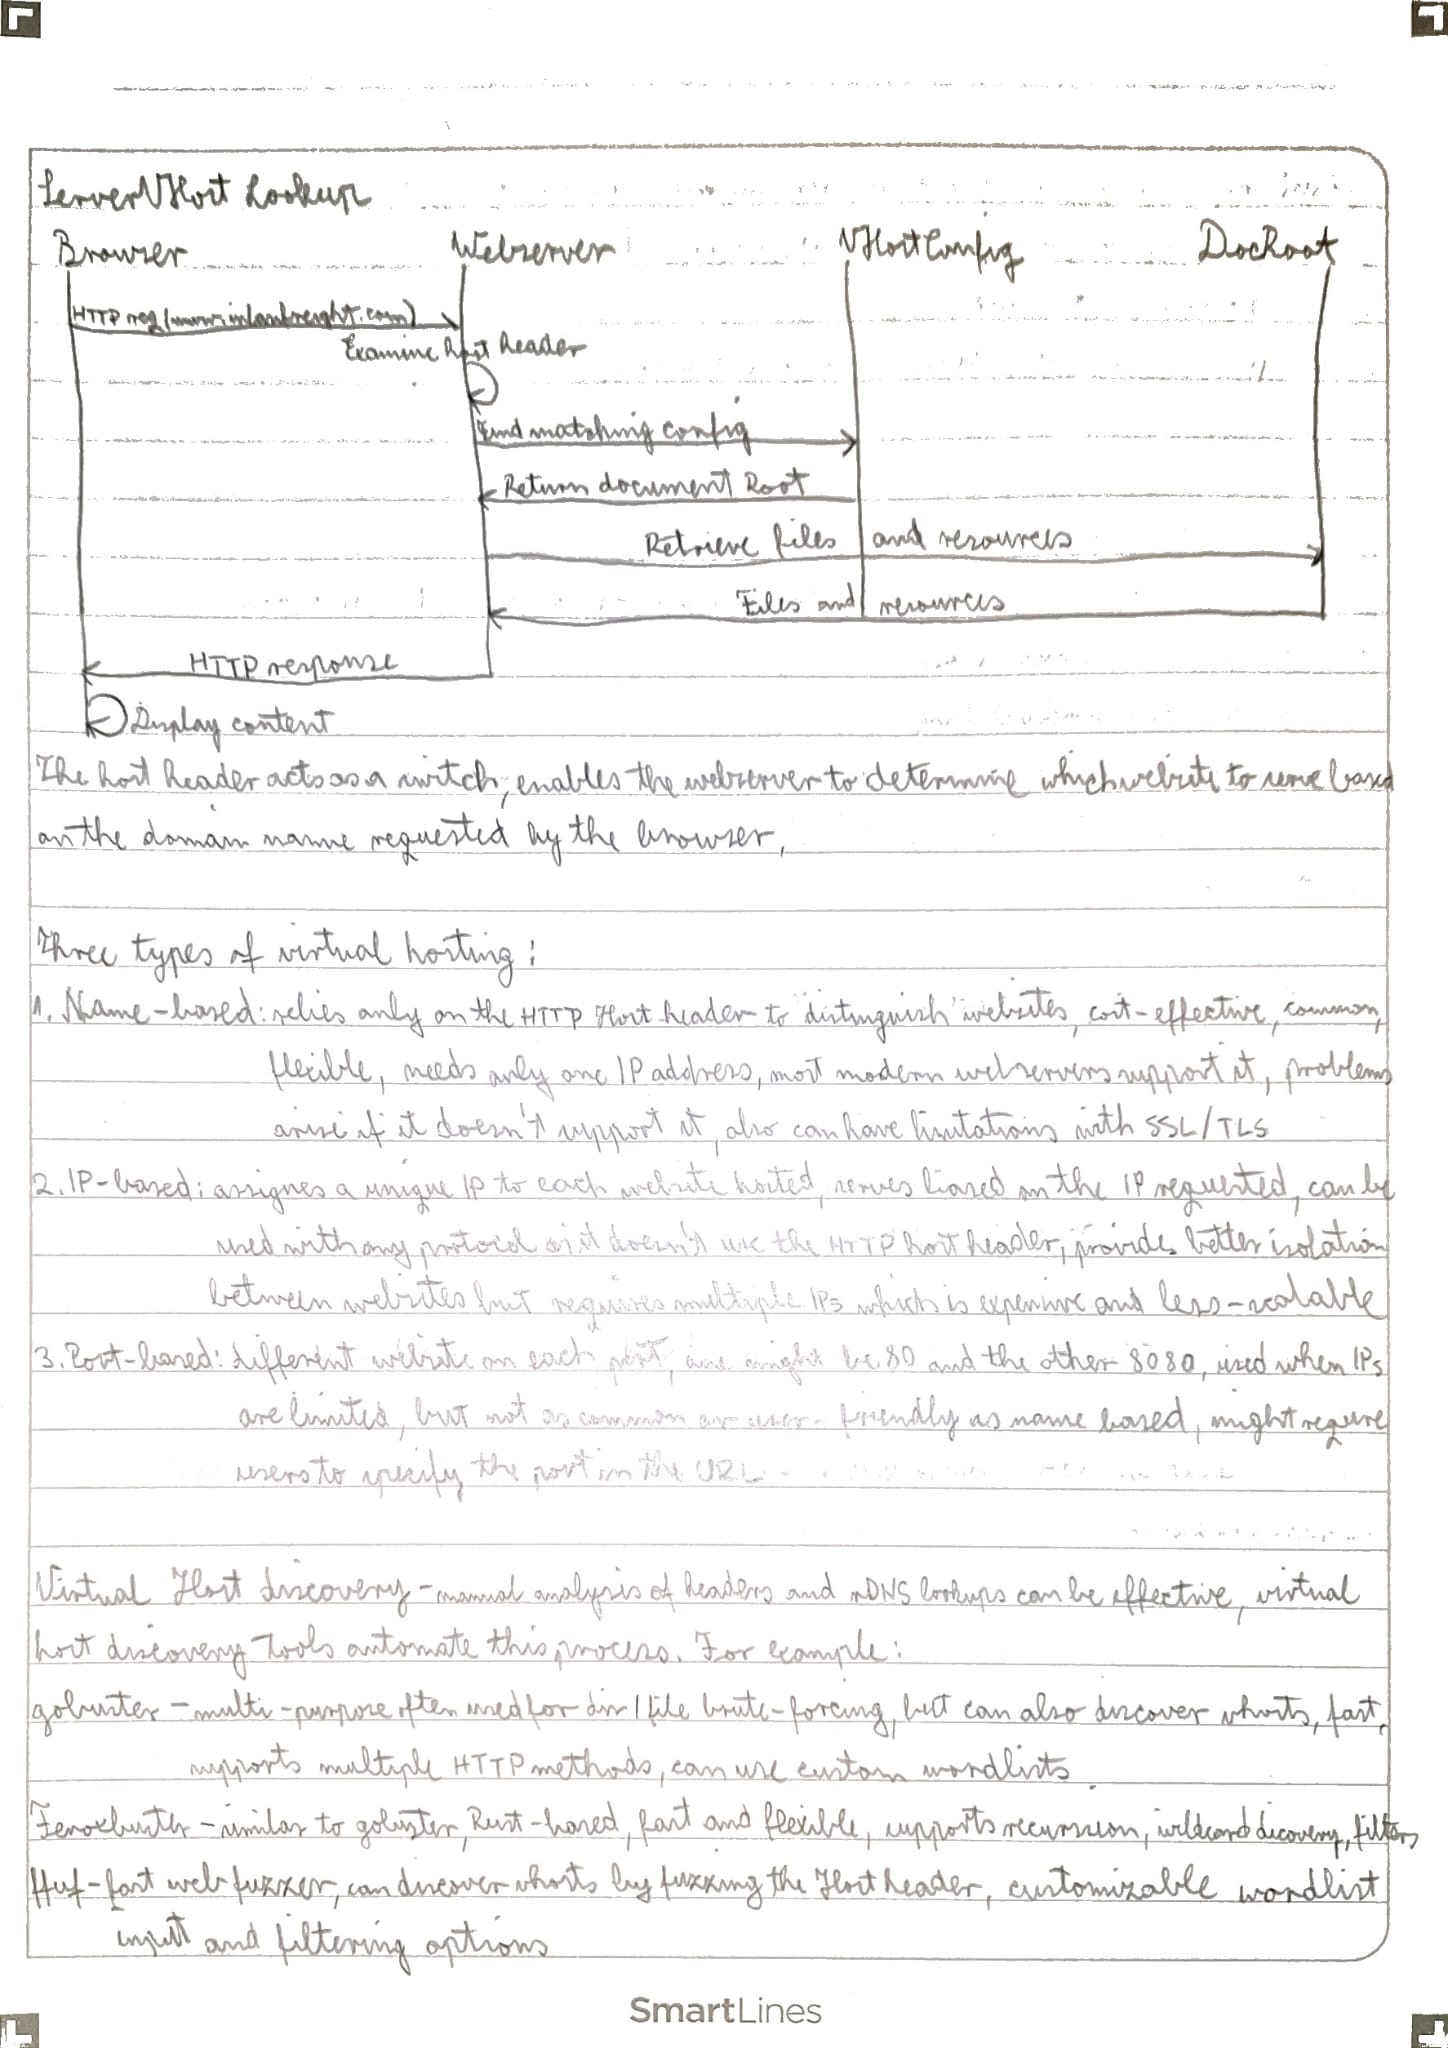 Server VHost Lookup
Browser Webserver VHostConfig DocRoot
HTTP req (www.inlanefreight.com)
Examine host header
Find matching config
Return document Root
Retrieve files and resources
Files and resources
HTTP response
Display content
The host header acts as a switch, enables the webserver to determine which website to serve based
on the domain name requested by the browser,
Three types of virtual hosting:
1. Name-based: relies only on the HTTP Host header to distinguish websites, cost-effective, common,
flexible, needs only one IP address, most modern webservers support it, problems
arise if it doesn't support it, also can have limitations with SSL/TLS
2. IP-based: assignes a unique IP to each website hosted, serves based on the IP requested, can be
used with any protocol as it doesn't use the HTTP host header, provides better isolation
between websites but requires multiple IPs which is expensive and less-scalable
3. Port-based: different website on each port, one might be 80 and the other 8080, used when IPs
are limited, but not as common or user-friendly as name based, might require
users to specify the port in the URL
Virtual Host discovery - manual analysis of headers and rDNS lookups can be effective, virtual
host discovery tools automate this process. For example:
gobuster - multi-purpose often used for dir/file brute-forcing, but can also discover vhosts, fast,
supports multiple HTTP methods, can use custom wordlists
Feroxbuster - similar to gobuster, Rust-based, fast and flexible, supports recursion, wildcard discovery, filters
ffuf - fast web fuzzer, can discover vhosts by fuzzing the Host header, customizable wordlist
input and filtering options
SmartLines